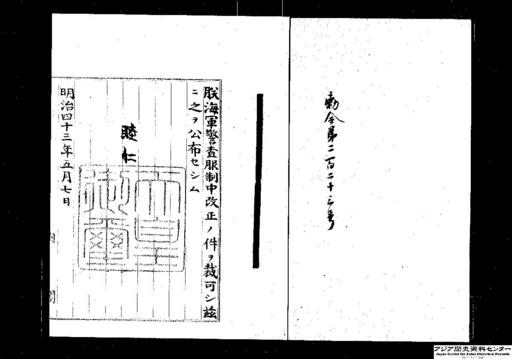 勅令第二百二十三号
朕海軍警査服制中改正ノ件ヲ裁可シ茲
ニ之ヲ公布セシム
睦仁
天皇御璽
明治四十三年五月七日
内閣
アジア歴史資料センター
Japan Center for Asian Historical Records